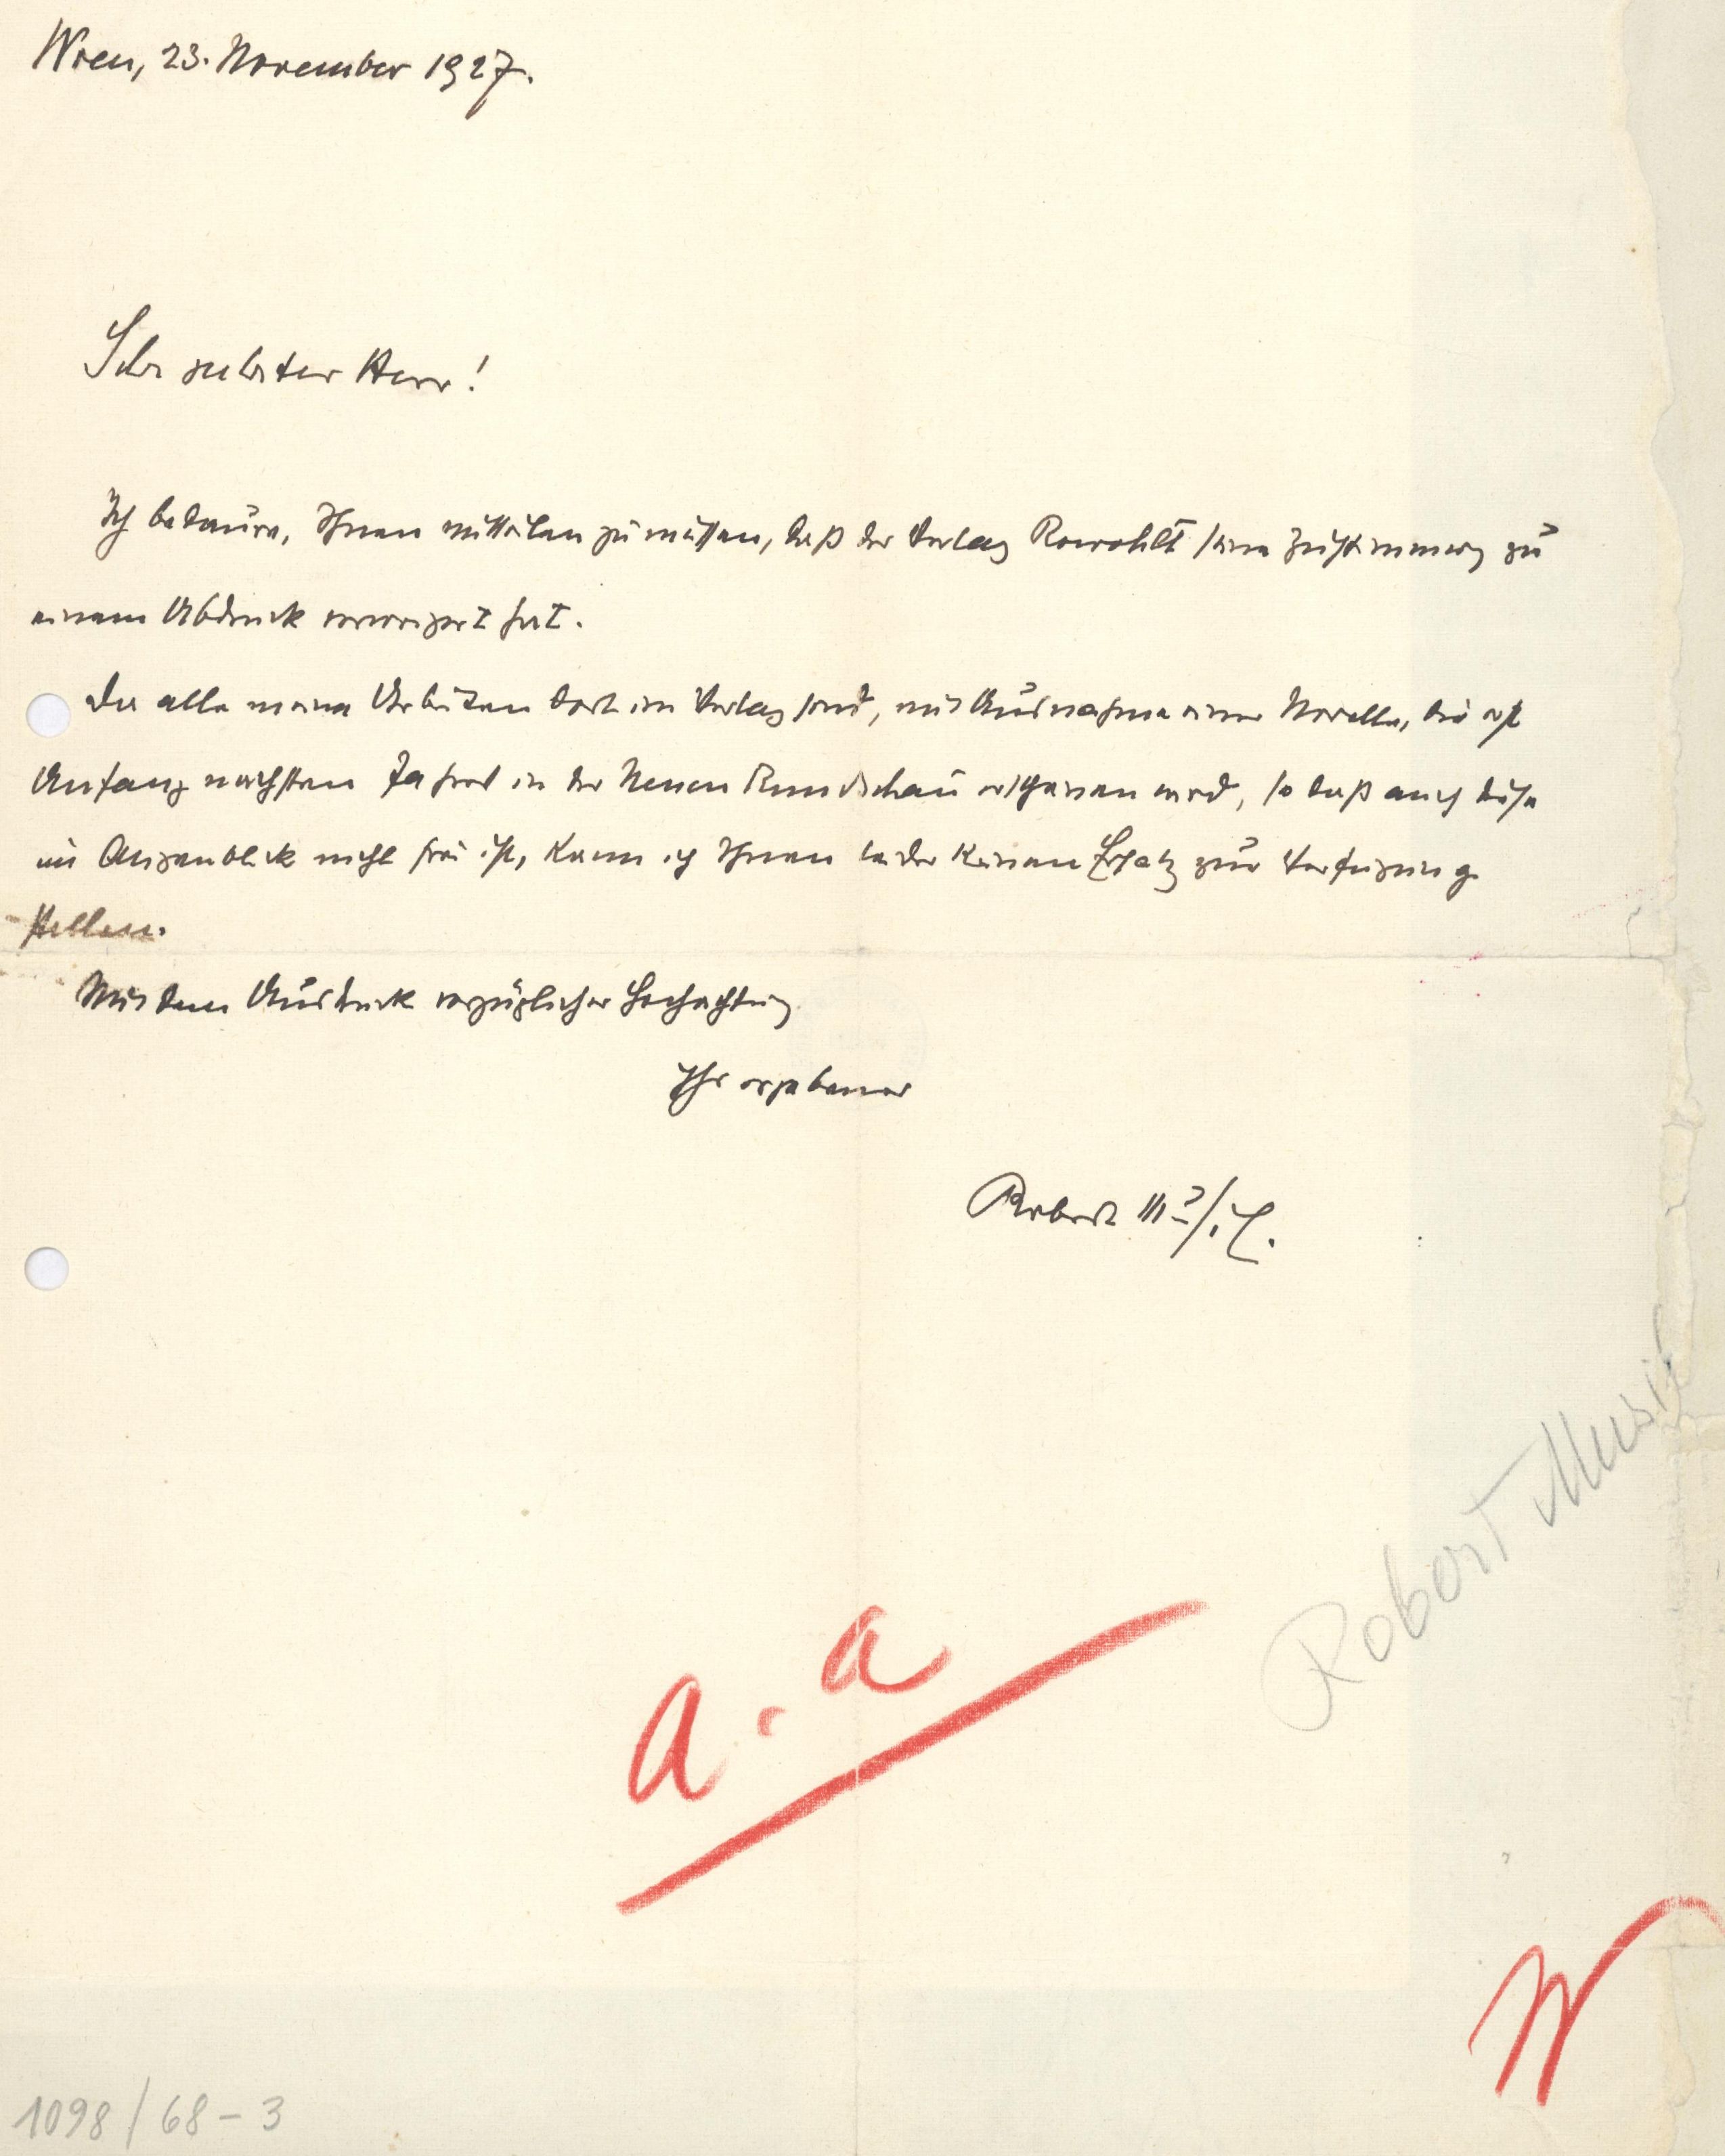 Wien, 23. November 1927.
Sehr geehrter Herr!
Ich bedaure, Ihnen mitteilen zu müssen, daß der Verlag Rowohlt seine Zustimmung zu
einem Abdruck verweigert hat.
Da alle meine Arbeiten dort im Verlag sind, mit Ausnahme einer Novelle, die erst
Anfang nächsten Jahres in der Neuen Rundschau erscheinen wird, so daß auch diese
im Augenblick nicht frei ist, kann ich Ihnen leider keinen Ersatz zur Verfügung
stellen.
Mit dem Ausdruck vorzüglicher Hochachtung
Ihr ergebener
Robert Musil.
Robert Musil
a. a
W
1098/68-3